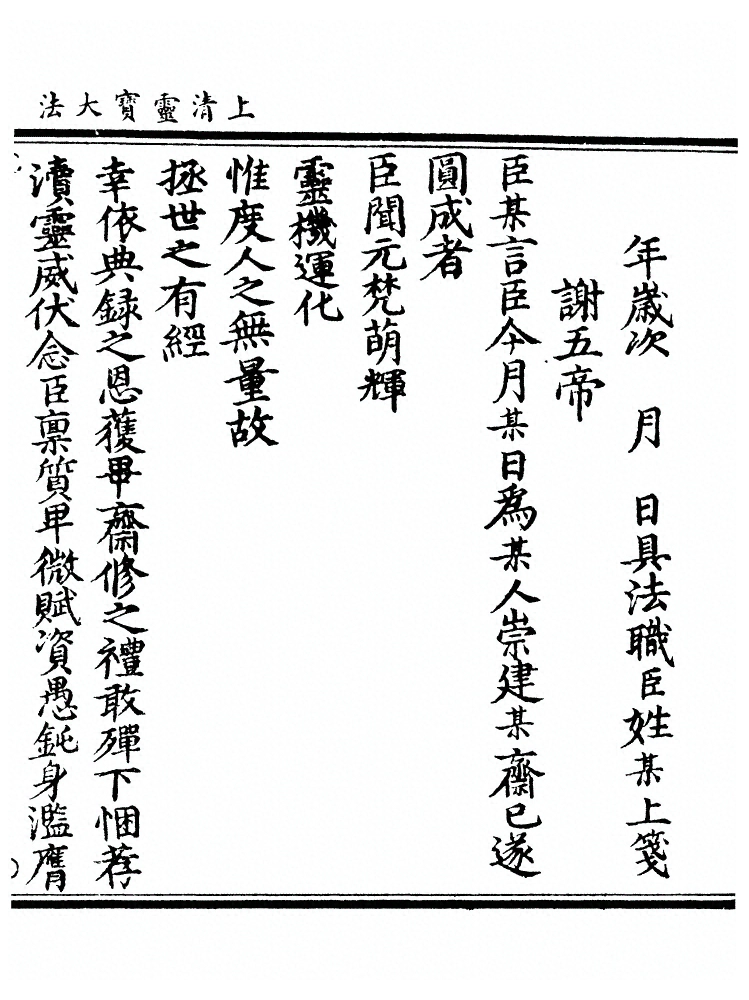 上清靈寶大法
年歲次　月　日具法職臣姓某上箋
謝五帝
臣某言臣今月某日爲某人崇建某齋已遂
圓成者
臣聞元梵萌輝
靈機運化
惟度人之無量故
拯世之有經
幸依典録之恩獲畢齋修之禮敢殫下悃荐
瀆靈威伏念臣禀質卑微賦資愚鈍身濫膺